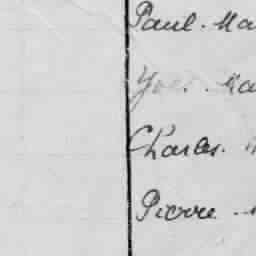 Paul. Ma
Yves. Ma
Charles.
Pierre.